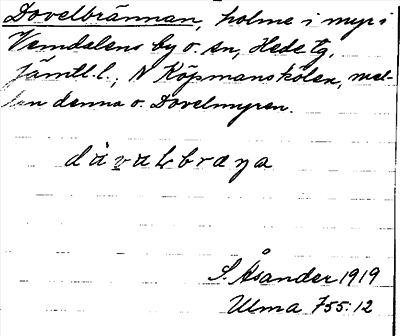 Dovelbrännan, holme i myr i
Vemdalens by o. sn, Hede tg,
Jämtl. l.; N Köpmanskölen, mel-
lan denna o. Dovelmyren.
dåvalbræna
S. Åsander 1919
Ulma 755:12